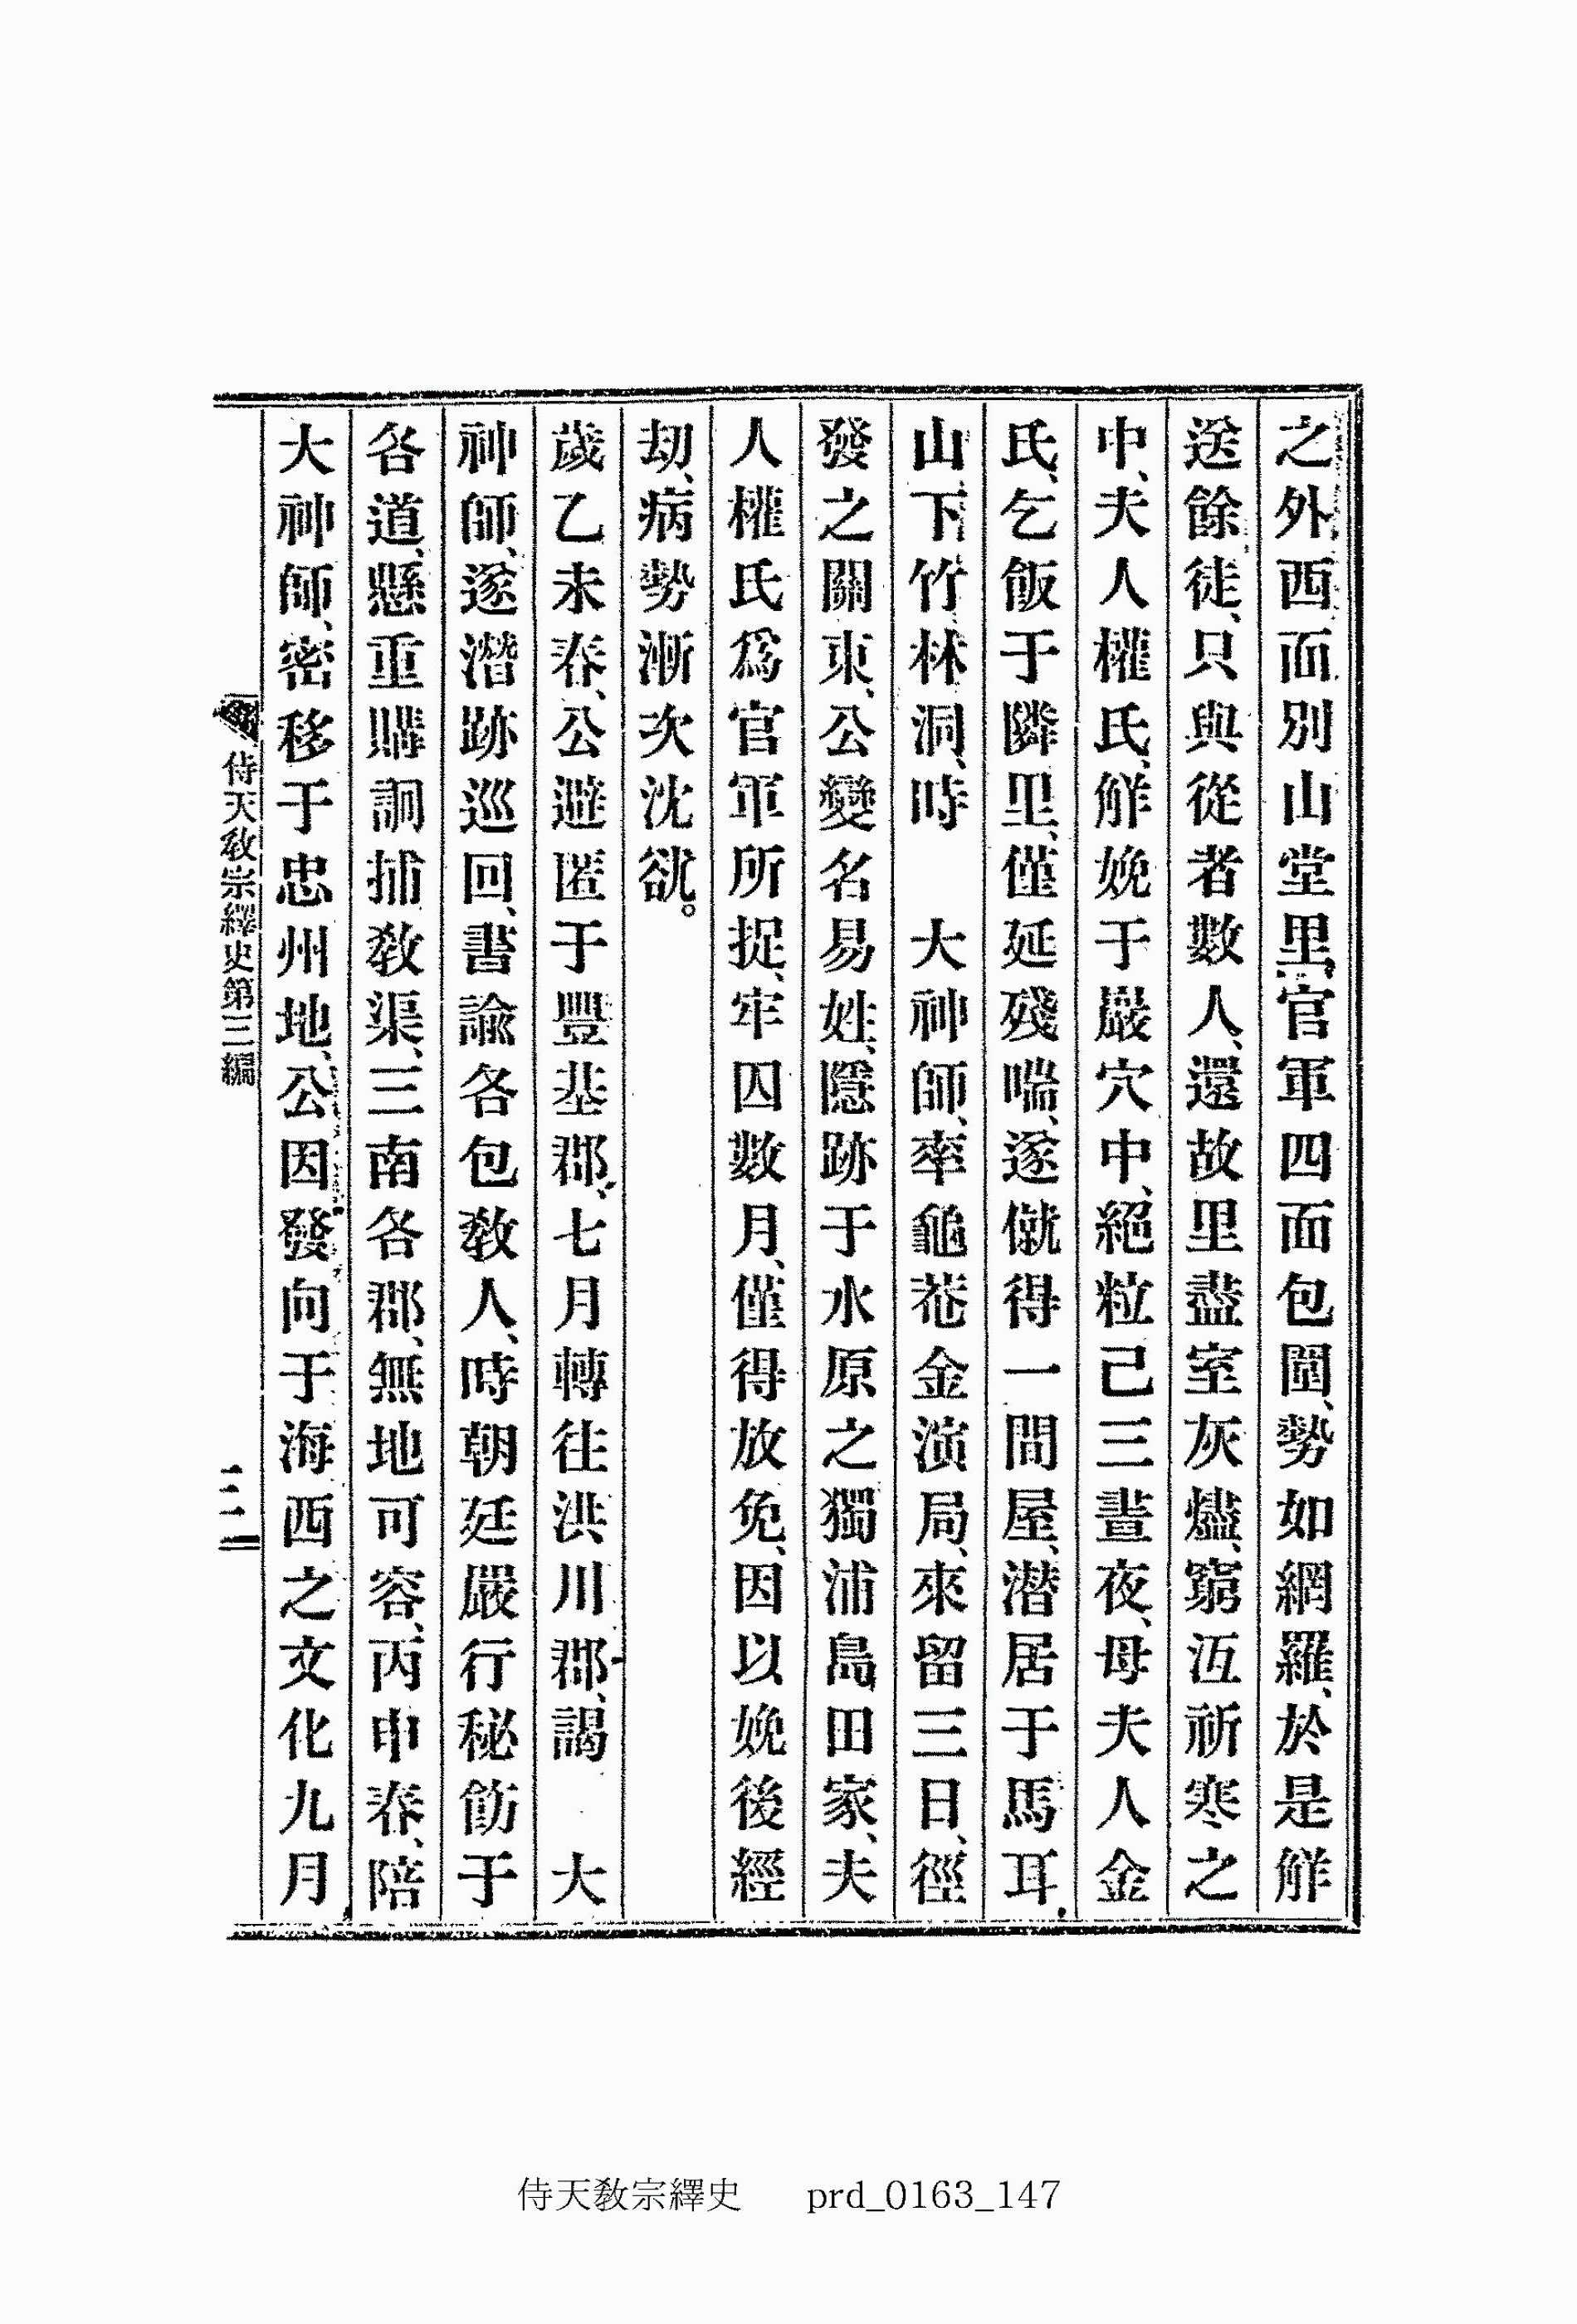 之外西面別山堂里、官軍四面包圍、勢如網羅、於是觧
送餘徒、只與從者數人、還故里盡室灰燼、窮沍祈寒之
中、夫人權氏、觧娩于巖穴中、絕粒己三晝夜、母夫人金
氏、乞飯于隣里、僅延殘喘、遂僦得一間屋、潜居于馬耳
山下竹林洞、時　大神師、率龜菴金演局、來留三日、徑
發之關東、公變名易姓、隱跡于水原之獨浦島田家、夫
人權氏爲官軍所捉、牢囚數月、僅得放免、因以娩後經
刧、病勢漸次沈欿。
歲乙未春、公避匿于豐基郡、七月轉往洪川郡、謁　大
神師、遂潜跡巡回、書諭各包敎人、時朝廷嚴行秘飭于
各道、懸重購詗捕敎渠、三南各郡、無地可容、丙申春、陪
大神師、密移于忠州地、公因發向于海西之文化九月
侍天敎宗繹史第三編
侍天敎宗繹史 prd_0163_147